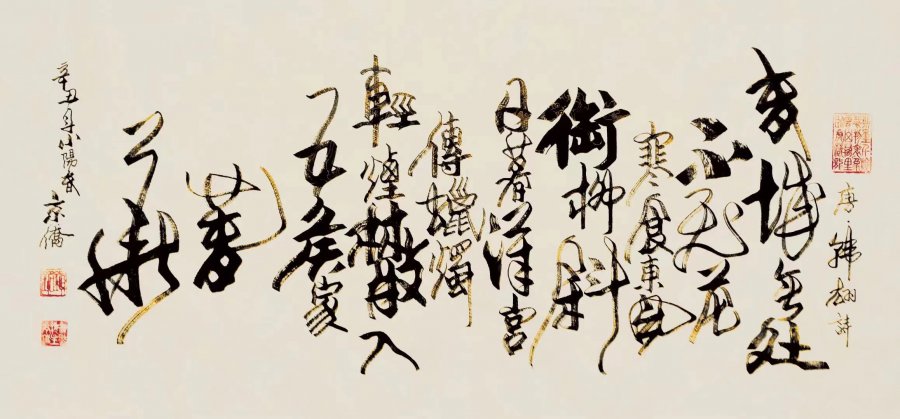 唐韓翃詩
春城無處
不飛花
寒食東風
御柳斜
日暮漢宮
傳蠟燭
輕煙散入
五侯家
辛丑年小陽春